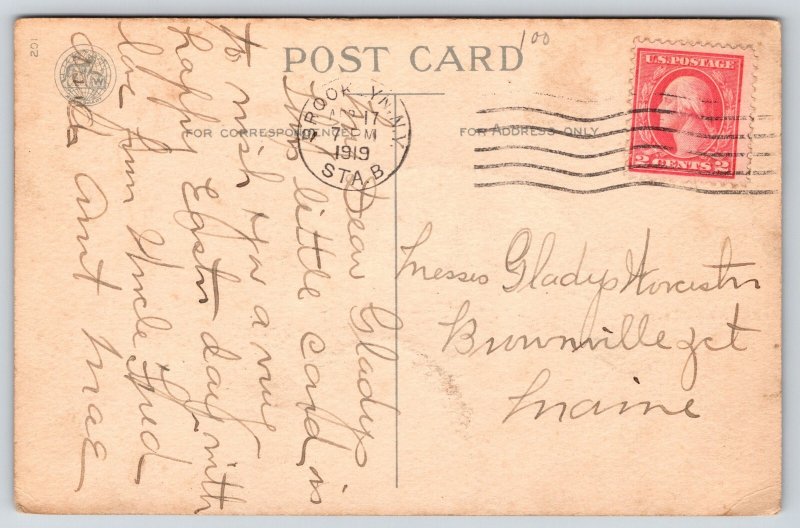 201
POST CARD
100
U.S. POSTAGE
2 CENTS 2
BROOKLYN, N.Y.
APR 17
7 PM
1919
STA. B
FOR CORRESPONDENCE
FOR ADDRESS ONLY
Dear Gladys
This little card is
to wish you a very
happy Easter day with
love from Uncle Fred
and Aunt Mae
Messes Gladys Worcester
Brownville Jct
Maine